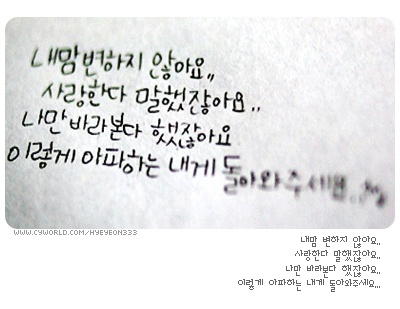 내맘변하지 않아요,,
사랑한다 말했잖아요..
나만바라본다 했잖아요
이렇게 아파하는 내게 돌아와주세요...
WWW.CYWORLD.COM/HYEYEON333
내맘 변하지 않아요,,
사랑한다 말했잖아요,,
나만 바라본다 했잖아요,,
이렇게 아파하는 내게 돌아와주세요,,,